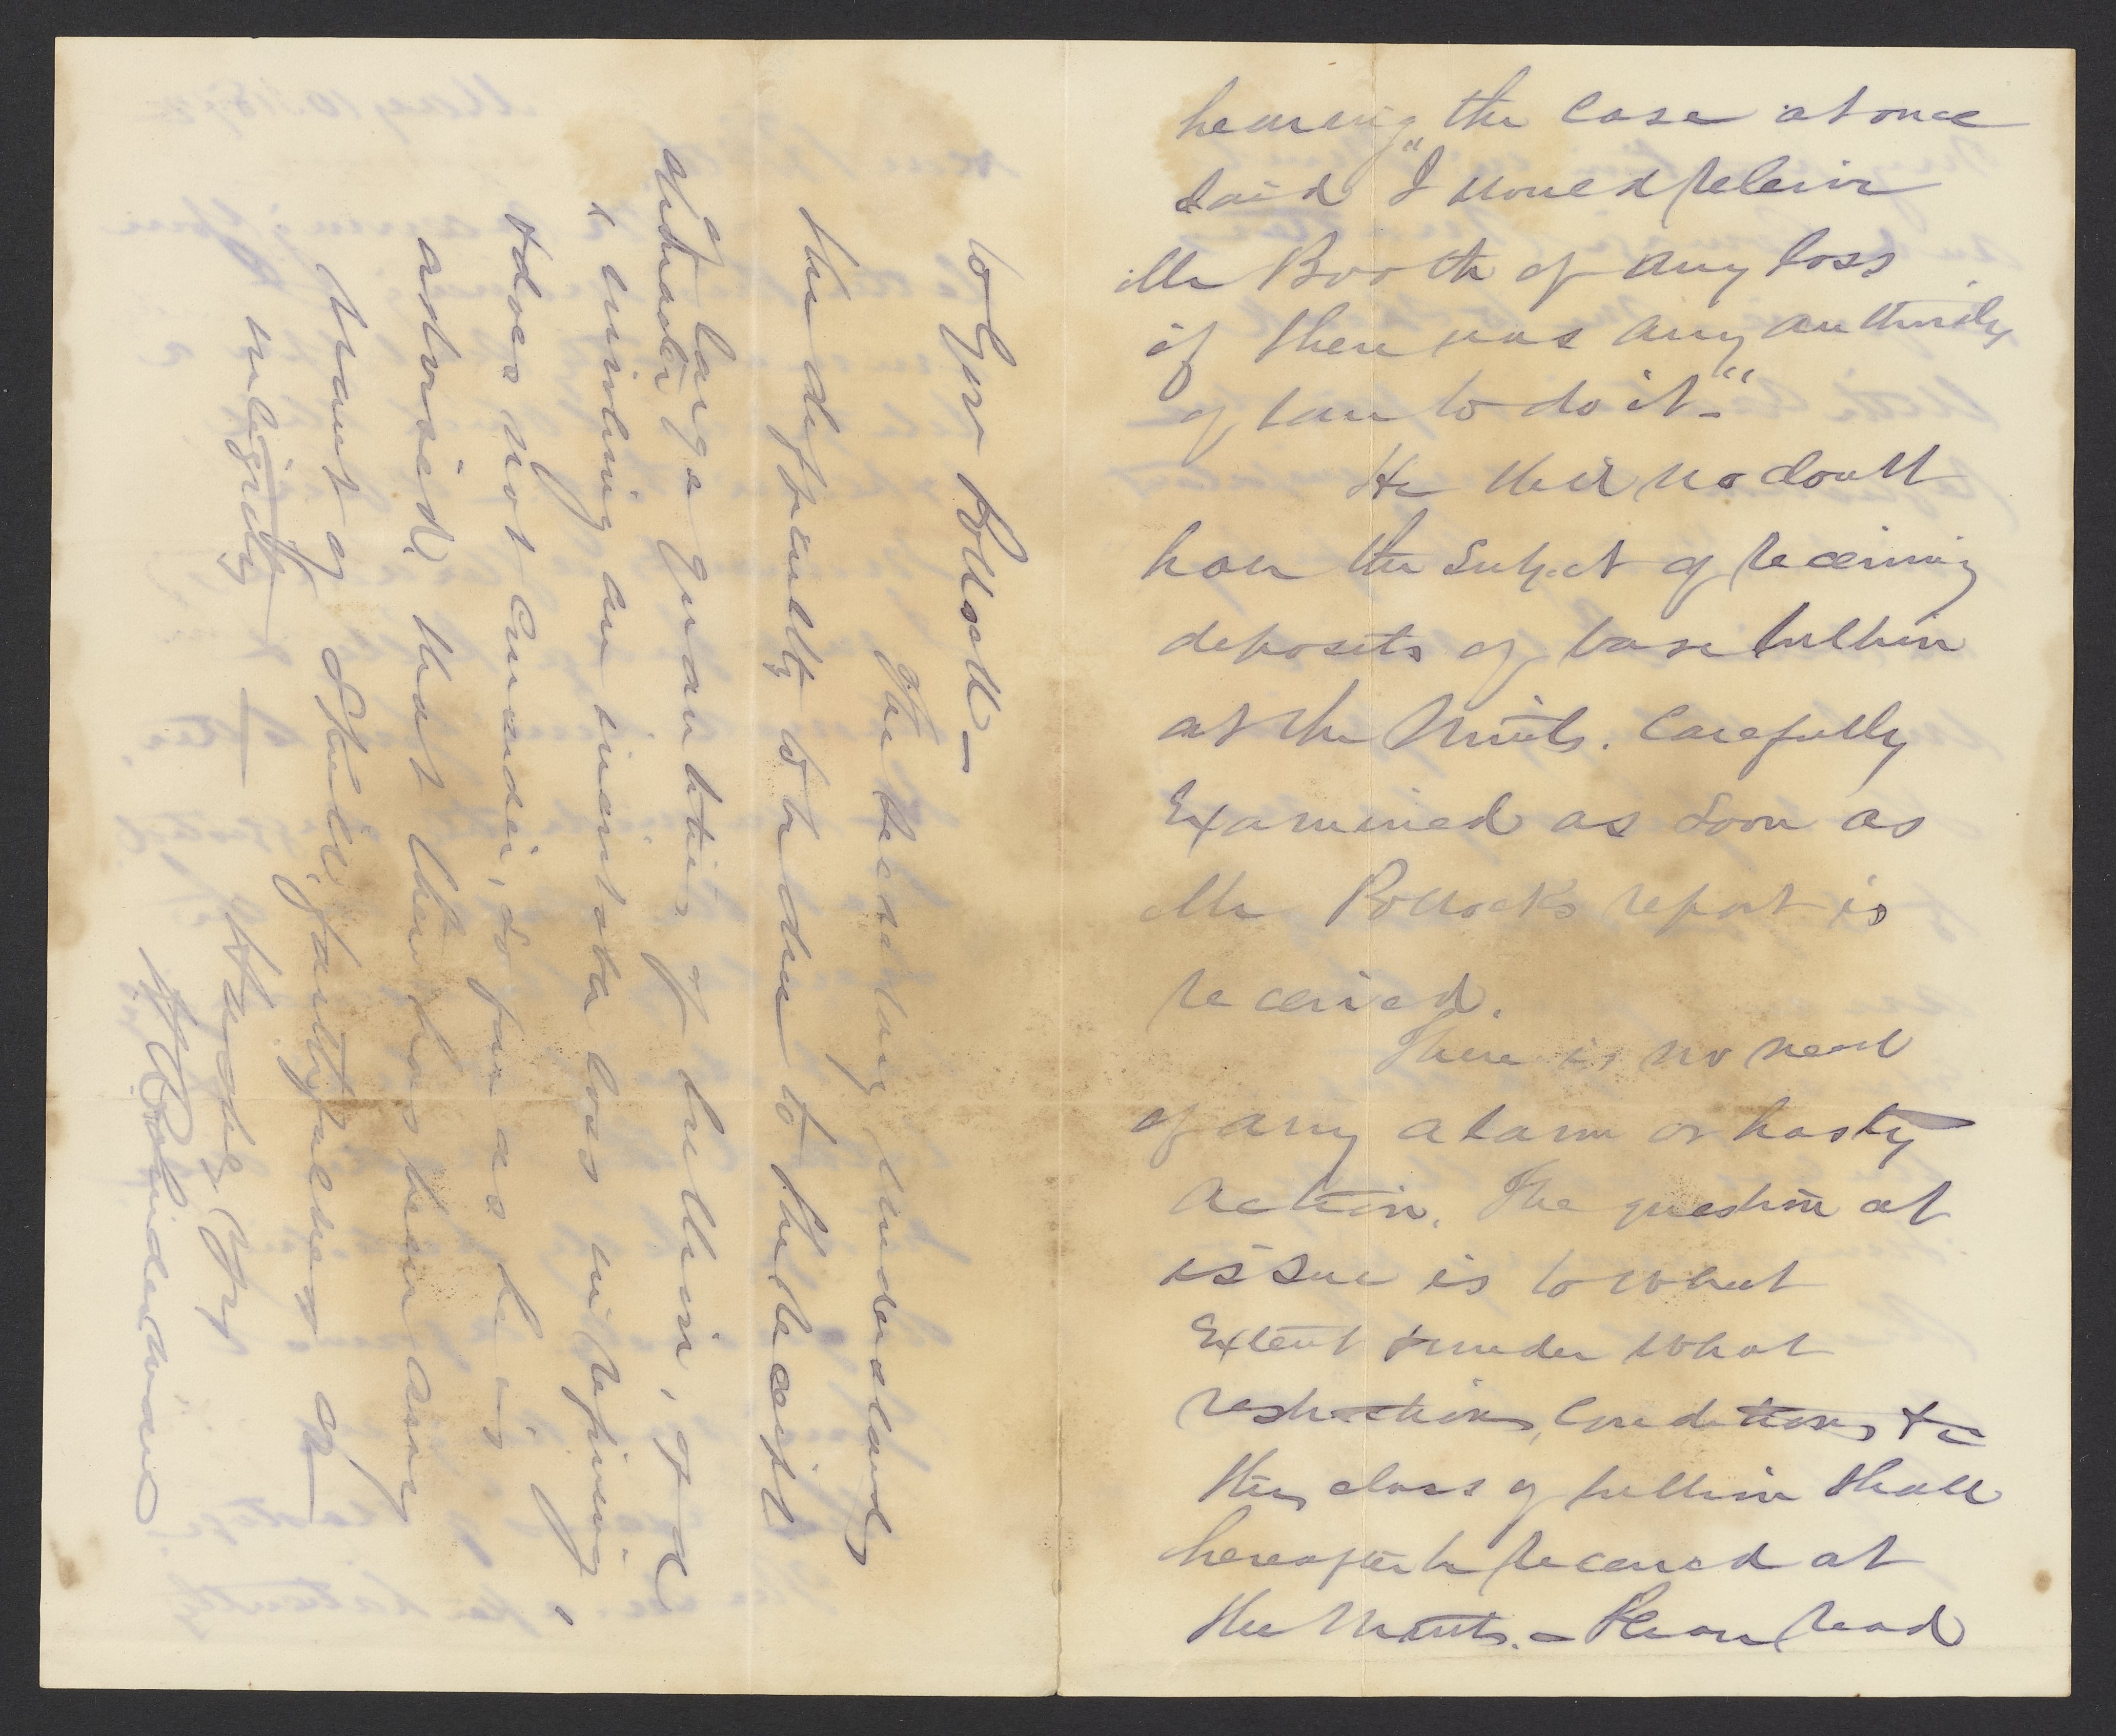 hearing the case at once
said "I would releive
Mr Booth of any loss
if there was any authority
of law to do it"
He will no doubt
have the subject of receiving
deposits of base bullion
at the Mints. Carefully
Examined as soon as
Mr Pollocks report is
received.
There is no need
of any alarm or hasty
action. The question at
issue is to what
Extent & under what
restrictions, conditions &c
this class of bullion shall
hereafter be received at
the Mints. - Please read
to Gov Pollock -
The Secretary understands
the difficulty to be due to the receipt
of large quantities of bullion, of a
character
involving an inevitable loss in refining
& does not consider, so far as he is
advised, that there has been any
want of skill, faithfulness or
integrity -
Truly Yrs
H R Linderman